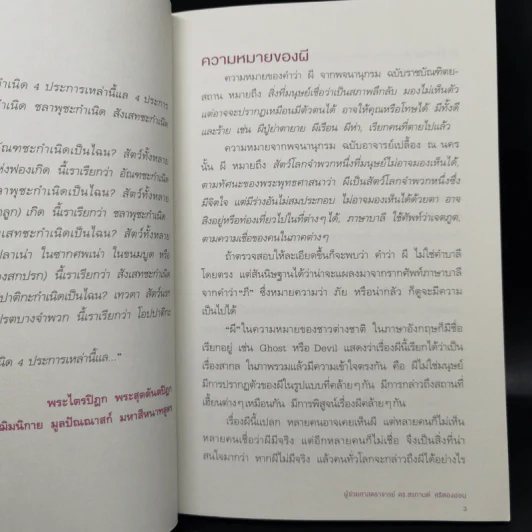 ำเนิด 4 ประการเหล่านี้แล 4 ประการ
กำเนิด ชลาพุชะกำเนิด สังเสทชะกำเนิด
ัณฑชะกำเนิดเป็นไฉน? สัตว์ทั้งหลาย
ห่งฟองเกิด นี้เราเรียกว่า อัณฑชะกำเนิด
ลาพุชะกำเนิดเป็นไฉน? สัตว์ทั้งหลาย
ลูก) เกิด นี้เราเรียกว่า ชลาพุชะกำเนิด
เสทชะกำเนิดเป็นไฉน? สัตว์ทั้งหลาย
ปลาเน่า ในซากศพเน่า ในขนมบูด หรือ
องสกปรก) นี้เราเรียกว่า สังเสทชะกำเนิด
ปาติกะกำเนิดเป็นไฉน? เทวดา สัตว์นรก
ปรตบางจำพวก นี้เราเรียกว่า โอปปาติกะ
นิด 4 ประการเหล่านี้แล..."
พระไตรปิฎก พระสุตตันตปิฎก
มัชฌิมนิกาย มูลปัณณาสก์ มหาสีหนาทสูตร
ความหมายของผี
ความหมายของคำว่า ผี จากพจนานุกรม ฉบับราชบัณฑิตย-
สถาน หมายถึง สิ่งที่มนุษย์เชื่อว่าเป็นสภาพลึกลับ มองไม่เห็นตัว
แต่อาจจะปรากฏเหมือนมีตัวตนได้ อาจให้คุณหรือโทษได้ มีทั้งดี
และร้าย เช่น ผีปู่ย่าตายาย ผีเรือน ผีห่า, เรียกคนที่ตายไปแล้ว
ความหมายจากพจนานุกรม ฉบับอาจารย์เปลื้อง ณ นคร
นั้น ผี หมายถึง สัตว์โลกจำพวกหนึ่งที่มนุษย์ไม่อาจมองเห็นได้,
ตามทัศนะของพระพุทธศาสนาว่า ผีเป็นสัตว์โลกจำพวกหนึ่งซึ่ง
มีจิตใจ แต่มีร่างอันไม่สมประกอบ ไม่อาจมองเห็นได้ด้วยตา อาจ
สิงอยู่หรือท่องเที่ยวไปในที่ต่างๆ ได้, ภาษาบาลี ใช้ศัพท์ว่าเจตภูต,
ตามความเชื่อของคนในภาคต่างๆ
ถ้าตรวจสอบให้ละเอียดขึ้นก็จะพบว่า คำว่า ผี ไม่ใช่คำบาลี
โดยตรง แต่สันนิษฐานได้ว่าน่าจะแผลงมาจากรากศัพท์ภาษาบาลี
จากคำว่า "ภี" ซึ่งหมายความว่า ภัย หรือน่ากลัว ก็ดูจะมีความ
เป็นไปได้
"ผี" ในความหมายของชาวต่างชาติ ในภาษาอังกฤษก็มีชื่อ
เรียกอยู่ เช่น Ghost หรือ Devil แสดงว่าเรื่องผีนี้เรียกได้ว่าเป็น
เรื่องสากล ในภาพรวมแล้วมีความเข้าใจตรงกัน คือ ผีไม่ใช่มนุษย์
มีการปรากฏตัวของผีในรูปแบบที่คล้ายๆ กัน มีการกล่าวถึงสถานที่
เฮี้ยนต่างๆ เหมือนกัน มีการพิสูจน์เรื่องผีคล้ายๆ กัน
เรื่องผีนี้แปลก หลายคนอาจเคยเห็นผี แต่หลายคนก็ไม่เห็น
หลายคนเชื่อว่าผีมีจริง แต่อีกหลายคนก็ไม่เชื่อ จึงเป็นสิ่งที่น่า
สนใจมากว่า หากผีไม่มีจริง แล้วคนทั่วโลกจะกล่าวถึงผีได้อย่างไร
ผู้ช่วยศาสตราจารย์ ดร.
3